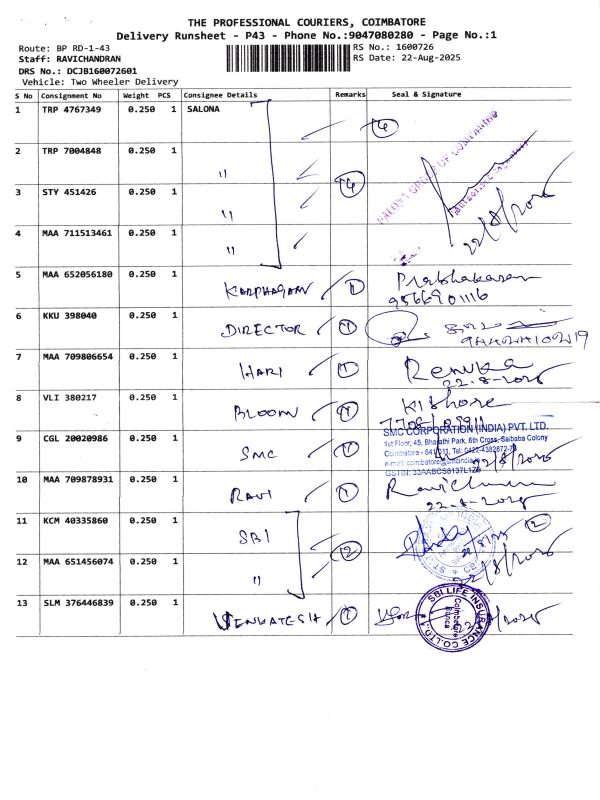 THE PROFESSIONAL COURIERS, COIMBATORE
Delivery Runsheet - P43 - Phone No.:9047080280 - Page No.:1
Route: BP RD-1-43
RS No.: 1600726
Staff: RAVICHANDRAN
RS Date: 22-Aug-2025
DRS No.: DCJB160072601
Vehicle: Two Wheeler Delivery
S No Consignment No Weight PCS Consignee Details Remarks Seal & Signature
1 TRP 4767349 0.250 1 SALONA 4
2 TRP 7004848 0.250 1 " 4
3 STY 451426 0.250 1 " 22/8/2025
4 MAA 711513461 0.250 1 "
5 MAA 652056180 0.250 1 KARPHAGAM 1 Prabhakaran
9566901116
6 KKU 398040 0.250 1 DIRECTOR 1
7 MAA 709806654 0.250 1 HARI 1 Renuka
22-8-2025
8 VLI 380217 0.250 1 BLOOM 1 Kishore
SMC CORPORATION (INDIA) PVT. LTD.
1st Floor, 45, Bharathi Park, 6th Cross, Saibaba Colony
Coimbatore - 641 011. Tel: 0422-4382872-73
9 CGL 20020986 0.250 1 SMC 1 22/8/2025
10 MAA 709878931 0.250 1 RAVI 1
22-8-2025
11 KCM 40335860 0.250 1 SBI 2
12 MAA 651456074 0.250 1 " 2 22/8/2025
13 SLM 376446839 0.250 1 VENKATESH 1
SBI LIFE INSURANCE CO. LTD.
Coimbatore